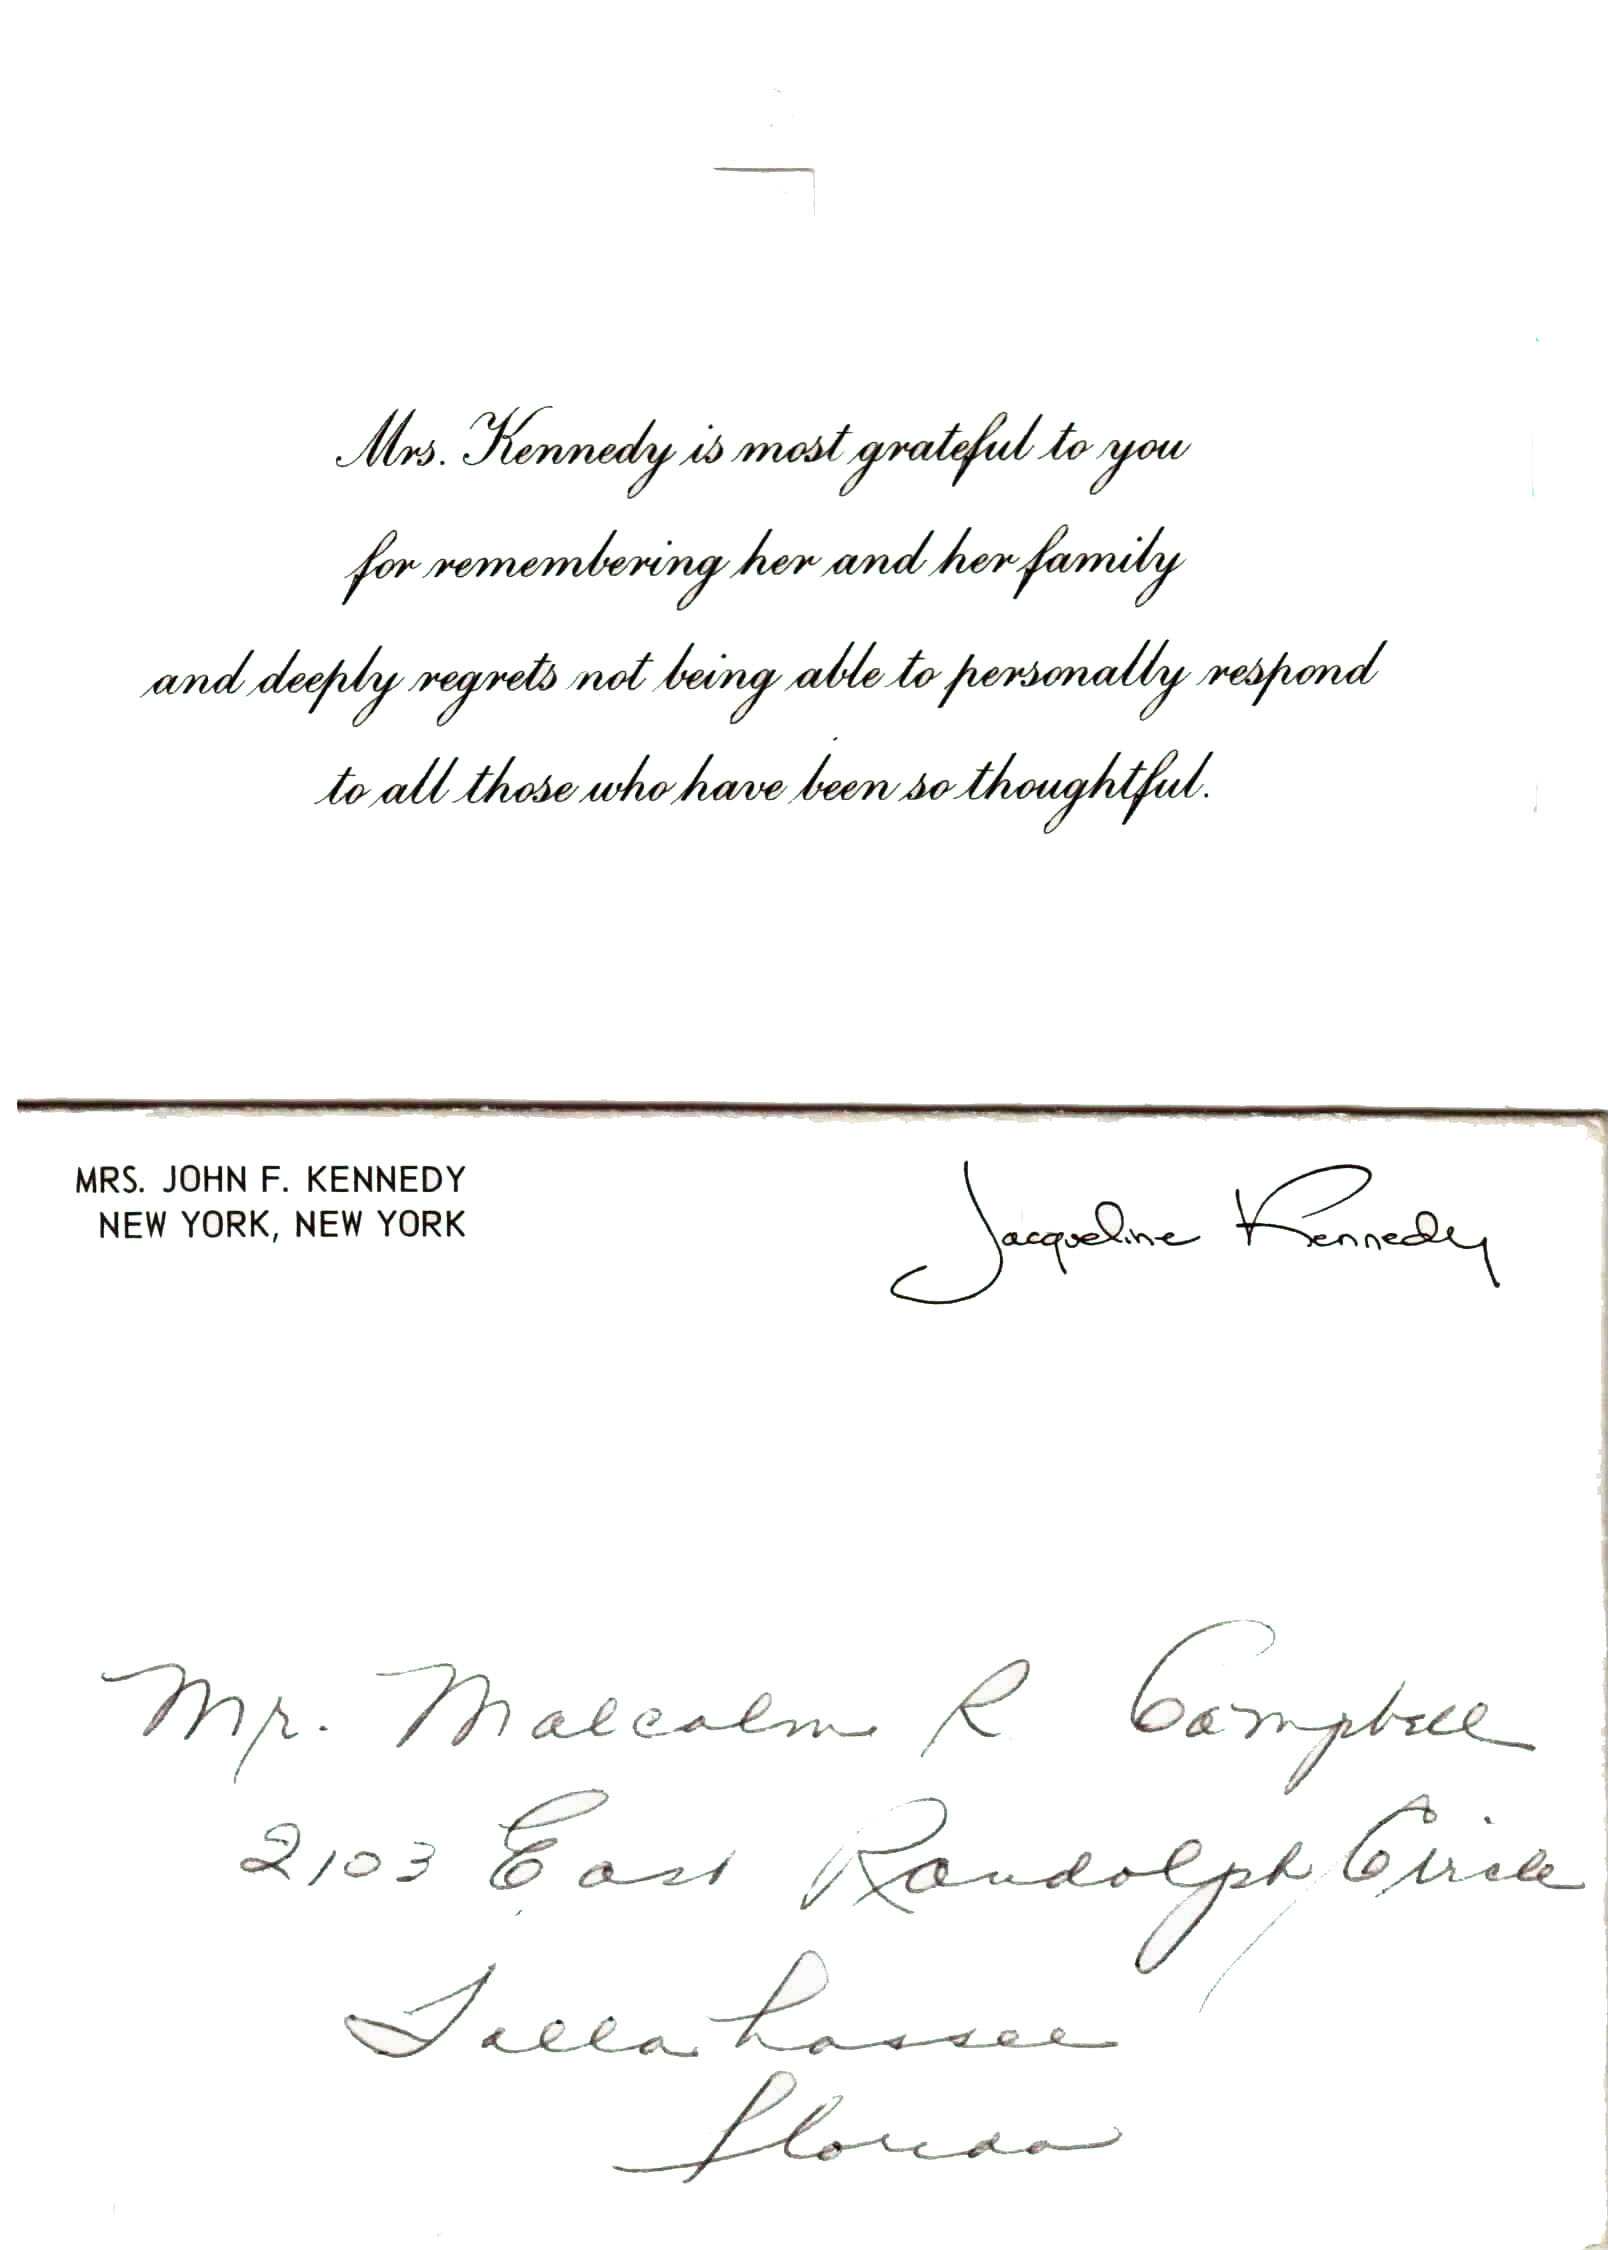 Mrs. Kennedy is most grateful to you
for remembering her and her family
and deeply regrets not being able to personally respond
to all those who have been so thoughtful.
MRS. JOHN F. KENNEDY
NEW YORK, NEW YORK
Jacqueline Kennedy
Mr. Malcolm R Campbell
2103 East Randolph Circle
Tallahassee
Florida